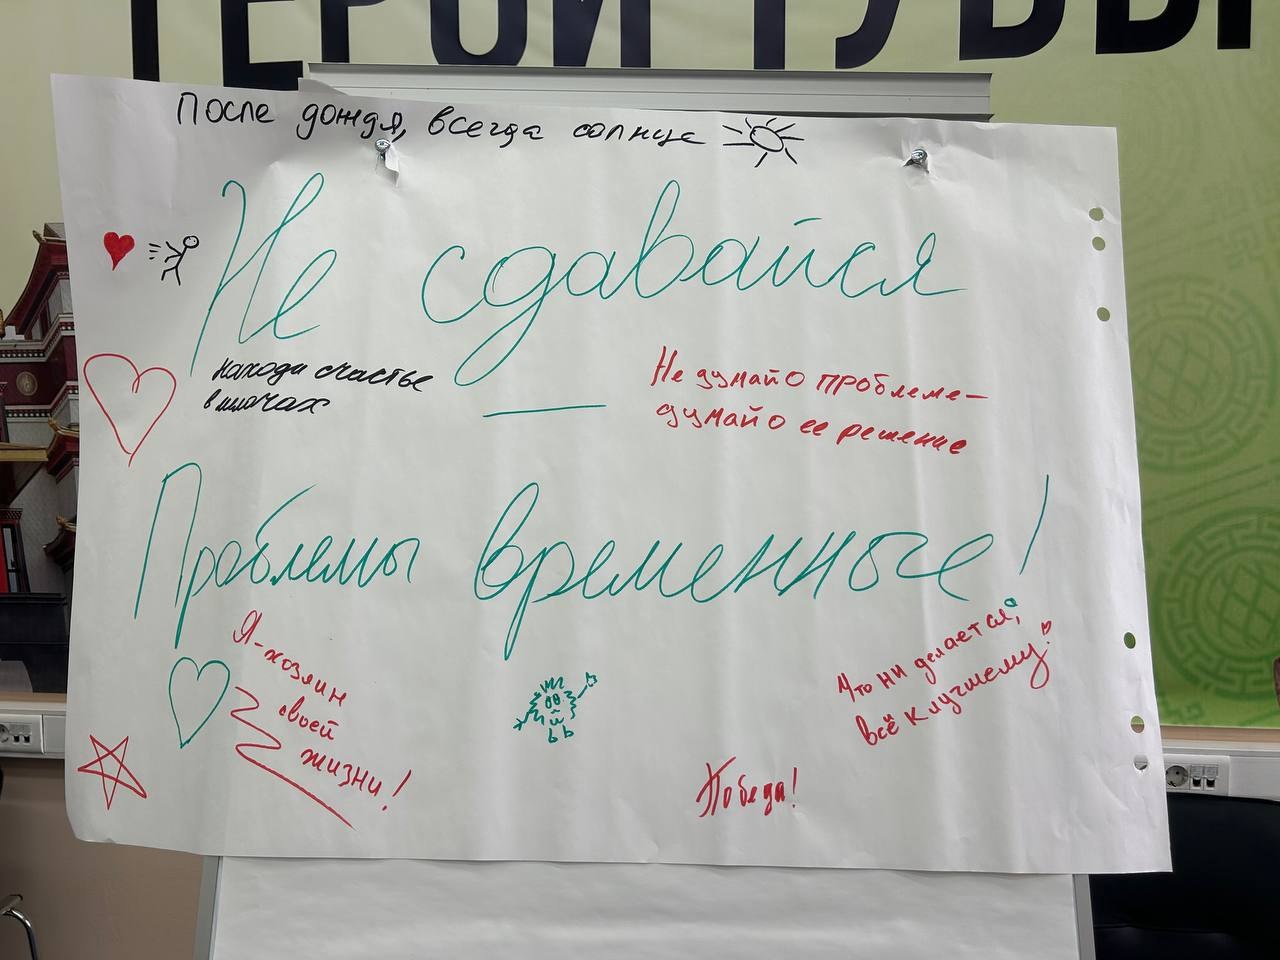 ГЕРОИ ТУВЫ
После дождя, всегда солнце
Не сдавайся
находи счастье
в мелочах
Не думай о проблеме—
думай о ее решение
Проблемы временные!
Я-хозяин
своей
жизни!
Что ни делается,
всё к лучшему!
Победа!